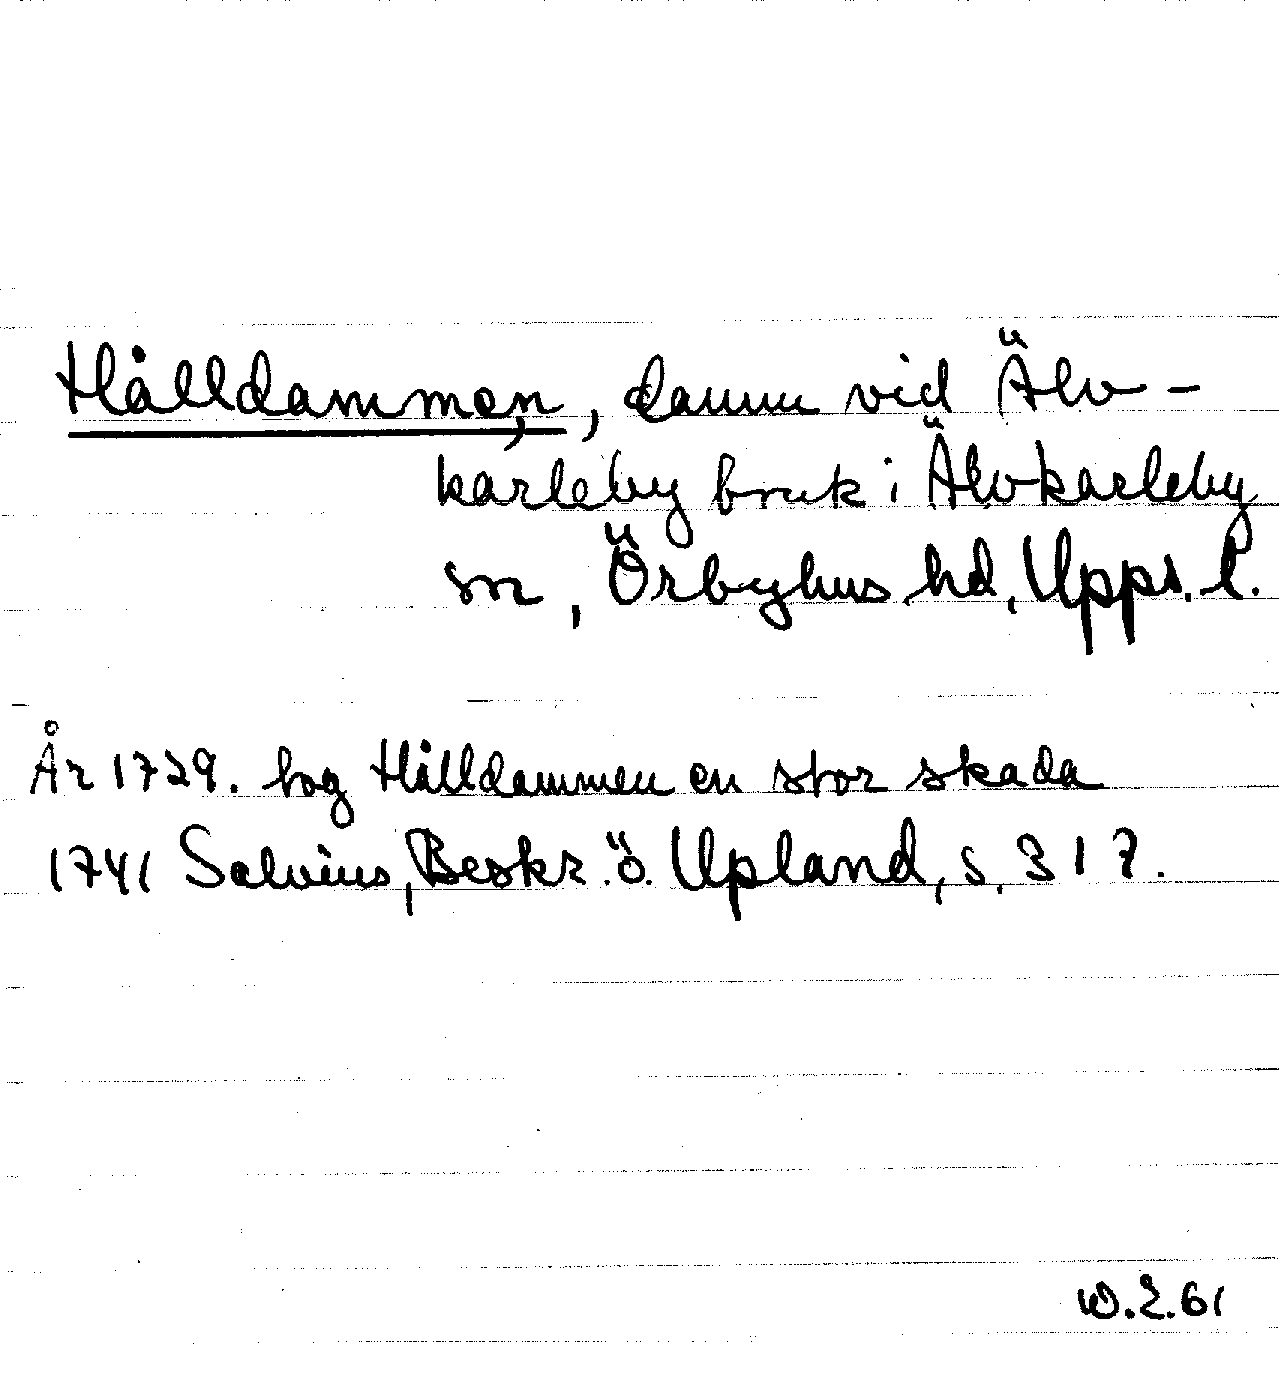 Hålldammen, damm vid Älv-
karleby bruk i Älvkarleby
sn, Örbyhus hd, Upps. l.
År 1729. tog Hålldammen en stor skada
1741 Salvius, Beskr. ö. Upland, s. 317.
W.E.61